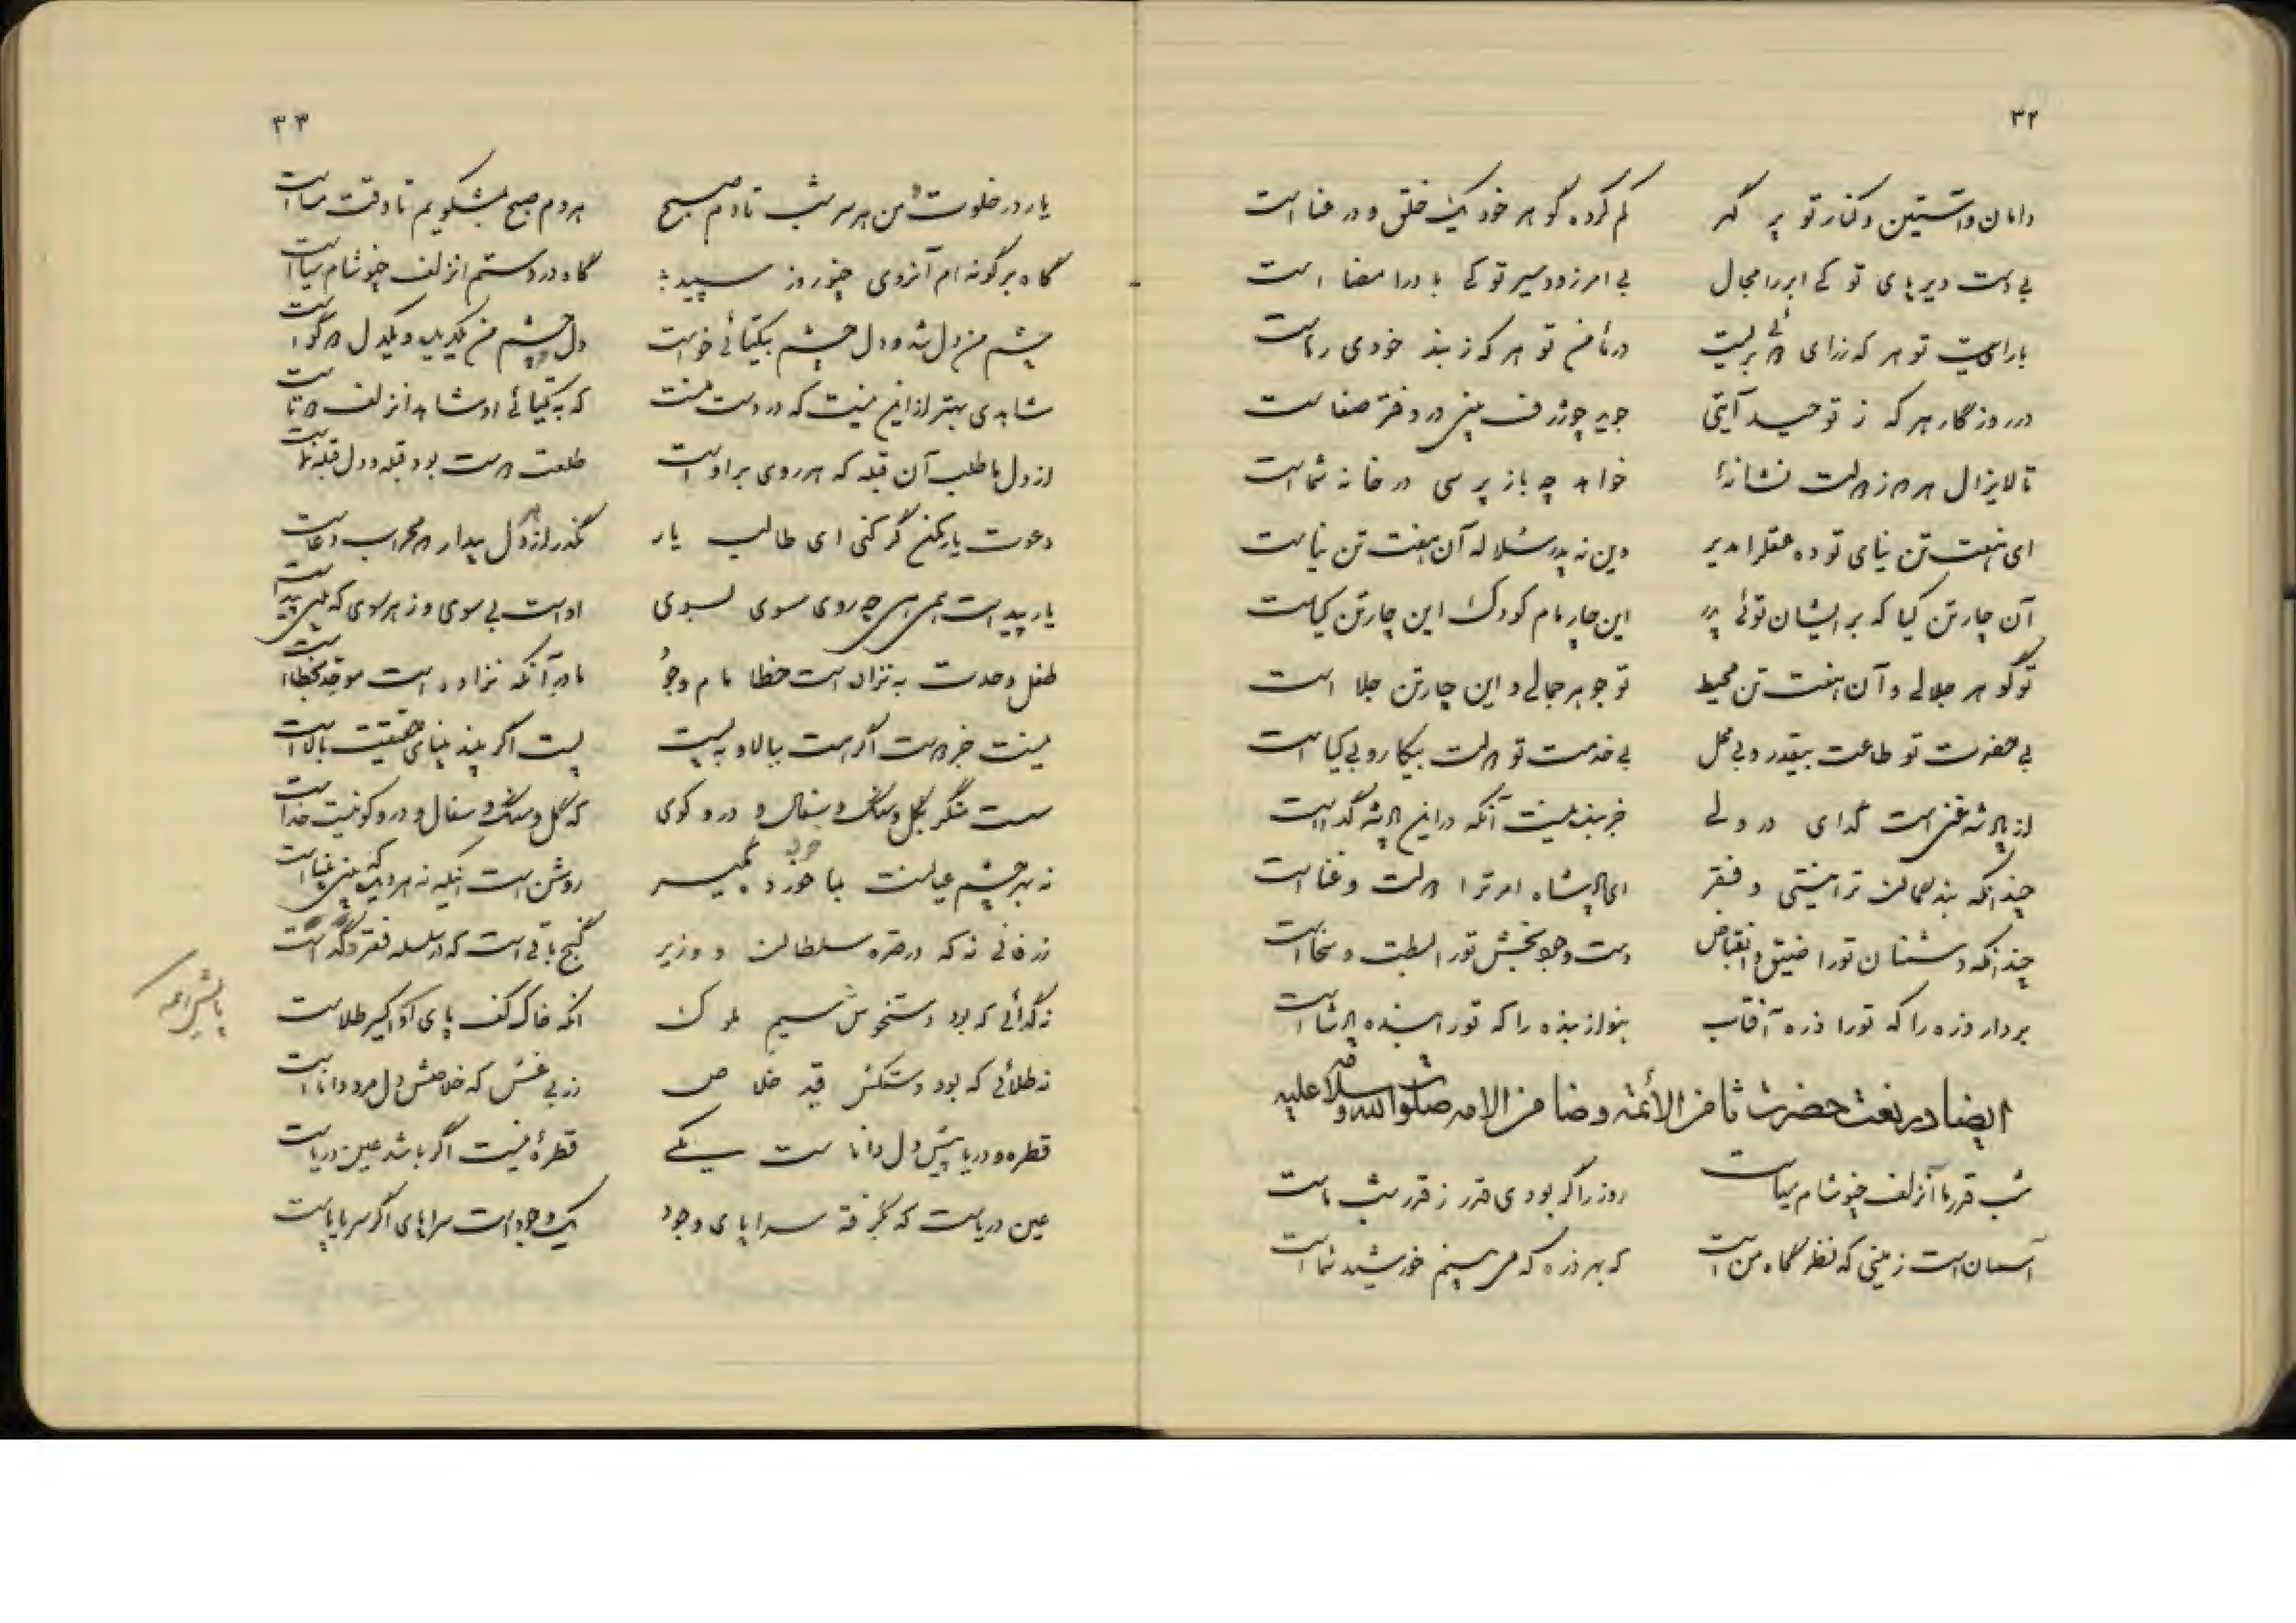 ۳۲
دامان و آستین و کنار تو پر گهر
گم کرده گوهر خود یک خلق و در عنا است
بی دست دیرپای تو کی ابر را مجال
بی امر زودسیر تو کی باد را مضا است
در مأمن تو هر که ز بند خودی رهاست
در روزگار هر که ز توحید آیتی
جوید چو ژرف بینی در دفتر صفاست
تا لایزال هر
خواهد چه باز پرسی در خانه شما است
ای هفت تن نیای تو ده عقل را مدیر
وین نه پدر سلاله آن هفت تن نیاست
آن چار تن کیا که بر ایشان توئی پدر
این چار مام کودک این چار تن کیاست
تو گوهر جلالی و آن هفت تن محیط
تو جوهر جمالی و این چار تن جلا است
بی حضرت تو طاعت بیقدر و بی محل
بی خدمت تو دولت بیکار و بی کیا است
از پادشه غنی است گدای در ولی
جز بنده نیست آنکه در این پادشه گداست
چندانکه بندگان ترا نیستی و فقر
ای پادشاه امر ترا دولت و غنا است
چندانکه دشمنان تو را ضیق و انقباض
دست وجود بخش تو را بسطت و سخا است
بردار ذره را که تو را ذره آفتاب
بنواز بنده را که تو را بنده پادشا است
ایضا در نعت حضرت ثامن الأئمة و ضامن الامه صلوات الله و سلامه علیه
شب قدر ما آنزلف چو شام سیاست
روز را گر بودی قدر ز قدر شب ماست
آسمان است زمینی که نظرگاه من است
که بهر ذره که می بینم خورشید نما است
۳۳
یار در خلوت من هر سر شب تا دم صبح
هر دم صبح بمشکویم تا وقت مسا است
گاه بر گونه ام آنروی چو روز سپید
گاه در دستم آنزلف چو شام سیا است
چشم من دل شد و دل چشم بیکتائی خواست
دل و چشم من یکدیده و یکدل دو گوا است
شاهدی بهتر از این نیست که در دست منست
که به یکتائی او شاهد آنزلف دو تا است
از دل ما طلب آن قبله که هر روی بر او است
طلعت دوست بود قبله و دل قبله نما است
دعوت یار مکن گر کنی ای طالب یار
مگذر از در دل بیدار که محراب دعاست
یار پیداست همی چه روی سوی بسوی
او است بی سوی و ز هر سوی که بینی پیدا است
طفل وحدت به نزاد است خطا مام وجود
مادر آنکه نزاد و است موحد بخطا است
نیست جز دوست اگر هست ببالا و به پست
پست اگر بیند بینای حقیقت بالا است
سست منگر بگل و سنگ و سفال و در و کوی
که گل و سنگ و سفال و در و کو نیست خدا است
روشن است آنکه نه هر دیده که بینی بینا است
زر فانی نه که در صره سلطان و وزیر
گنج باقی است که در سلسله فقر و گدا است
نه گدائی که بود دستخوش سیم ملوک
آنکه خاک کف پای او اکسیر طلاست
نه طلائی که بود دستکش قید خلاص
زر بی غش که خلاصش دل مرد دانا است
قطره و دریا پیش دل داناست یکی
قطره نیست اگر باشد عین دریاست
عین دریاست که بگرفته سراپای وجود
یک وجود است سراپای اگر سر یا پاست